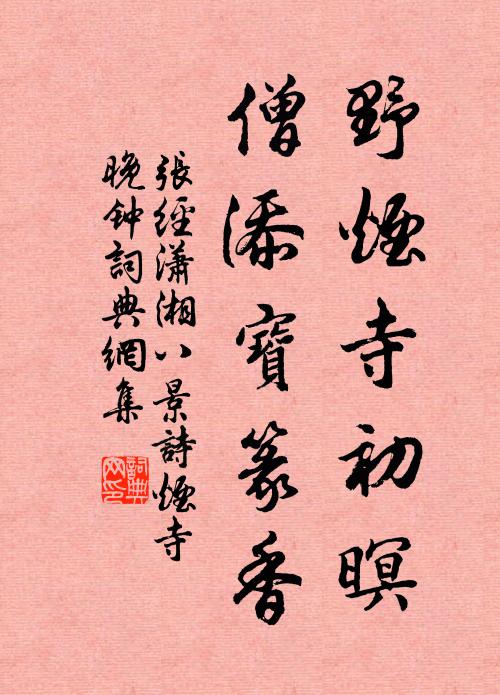 野煙寺初暝
僧添寶篆香
張經瀟湘八景詩煙寺
晚钟詞典網集
詞典
网印